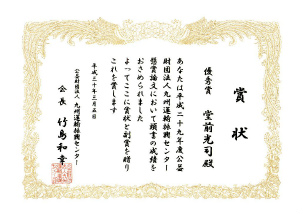 賞状
優秀賞 堂前光司殿
あなたは平成二十九年度公益
財団法人九州運輸振興センター
懸賞論文において頭書の成績を
おさめられました
よってここに賞状と副賞を贈り
これを賞します
平成三十年三月五日
公益財団法人 九州運輸振興センター
会長 竹島和幸